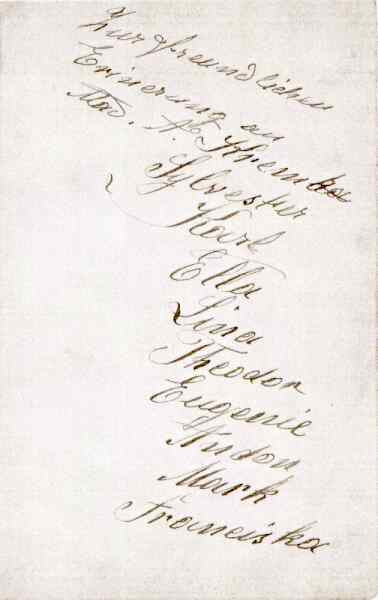 Zur freundlichen
Erinerung an
Mad. A.
Sylvester
Karl
Ella
Lina
Theodor
Eugenie
Mark
Franciska